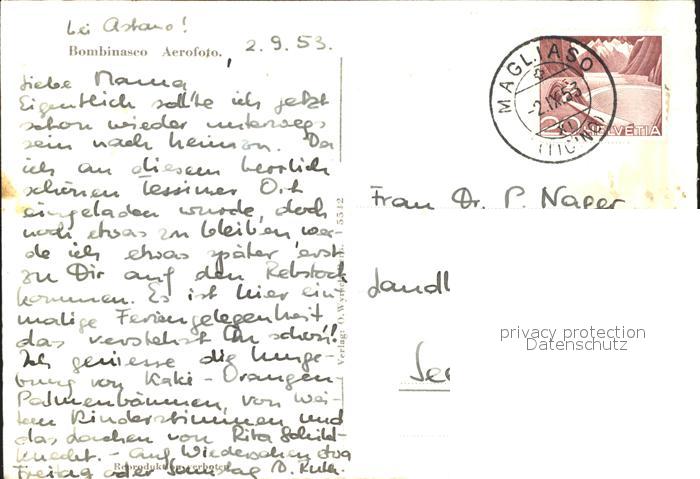 bei Astano!
Bombinasco Aerofoto.
2.9.53.
Liebe Mamma,
Eigentlich sollte ich jetzt
schon wieder unterwegs
sein nach heimzu. Da
ich an diesem herrlich
schönen Tessiner Ort
eingeladen wurde, doch
noch etwas zu bleiben wer-
de ich etwas später erst
zu Dir auf den Rebstock
kommen. Es ist hier ein-
malige Feriengelegenheit
das verstehst Du schon!!
Ich geniesse die Umge-
bung von Kaki - Orangen
Palmenbäumen, von wei-
tem Kinderstimmen und
das Lachen von Rita Schild-
knecht. - Auf Wiedersehen etwa
Freitag oder Samstag D. Ruth.
Reproduktion verboten
Verlag: O. 5542
MAGLIASO
-2.IX.53
(TICINO)
20
HELVETIA
Frau Dr. P. Nager
Landl
Se
privacy protection
Datenschutz